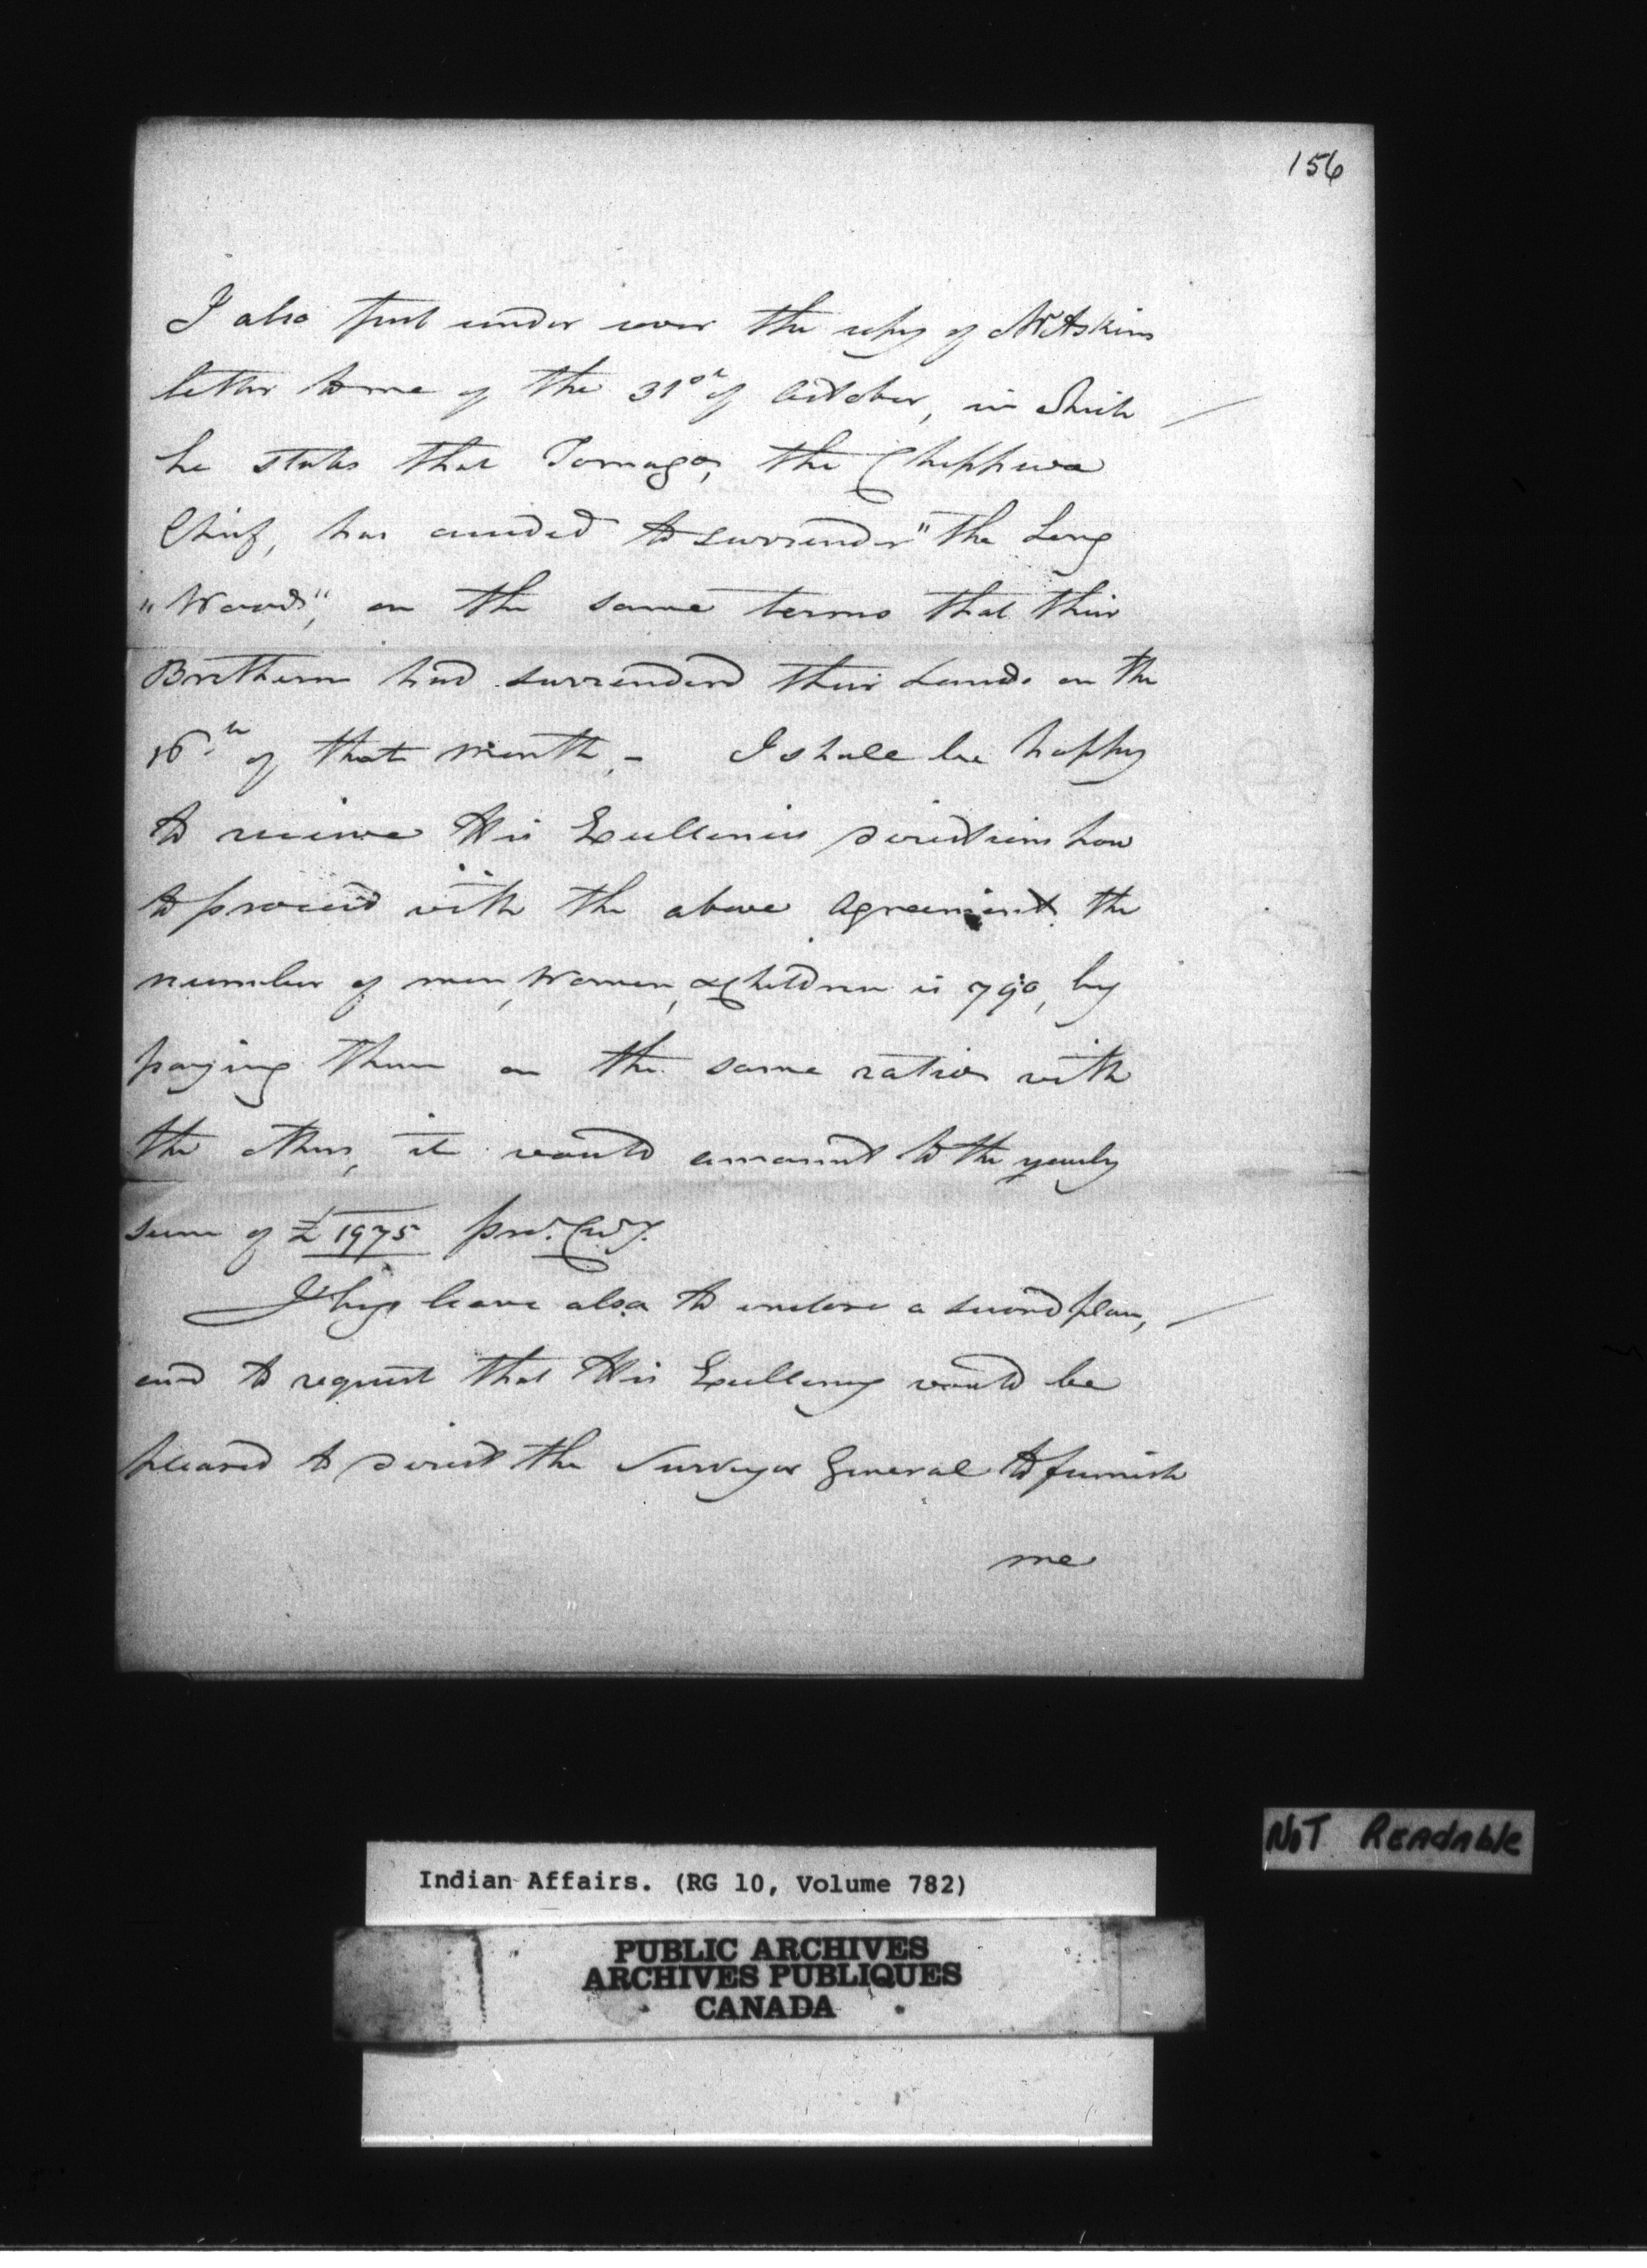 156
I also put under cover the copy of Mr Askins
letter to me of the 31st of October, in which
he states that Tomago, the Chippewa
Chief, has acceded to surrender "the Long
"Woods", on the same terms that their
Brethern had surrendered their Lands on the
16th of that Month. - I shall be happy
to receive His Excellencies directions how
to proceed with the above Agreement, the
number of men, Women, & Children is 790, by
paying them on the same ratio with
the others, it would amount to the yearly
sum of £ 1975 pro. Cury.
I beg leave also to enclose a second plan,
and to request that His Excellency would be
pleased to direct the Surveyor General to furnish
me
NOT READABLE
Indian Affairs. (RG 10, Volume 782)
PUBLIC ARCHIVES
ARCHIVES PUBLIQUES
CANADA